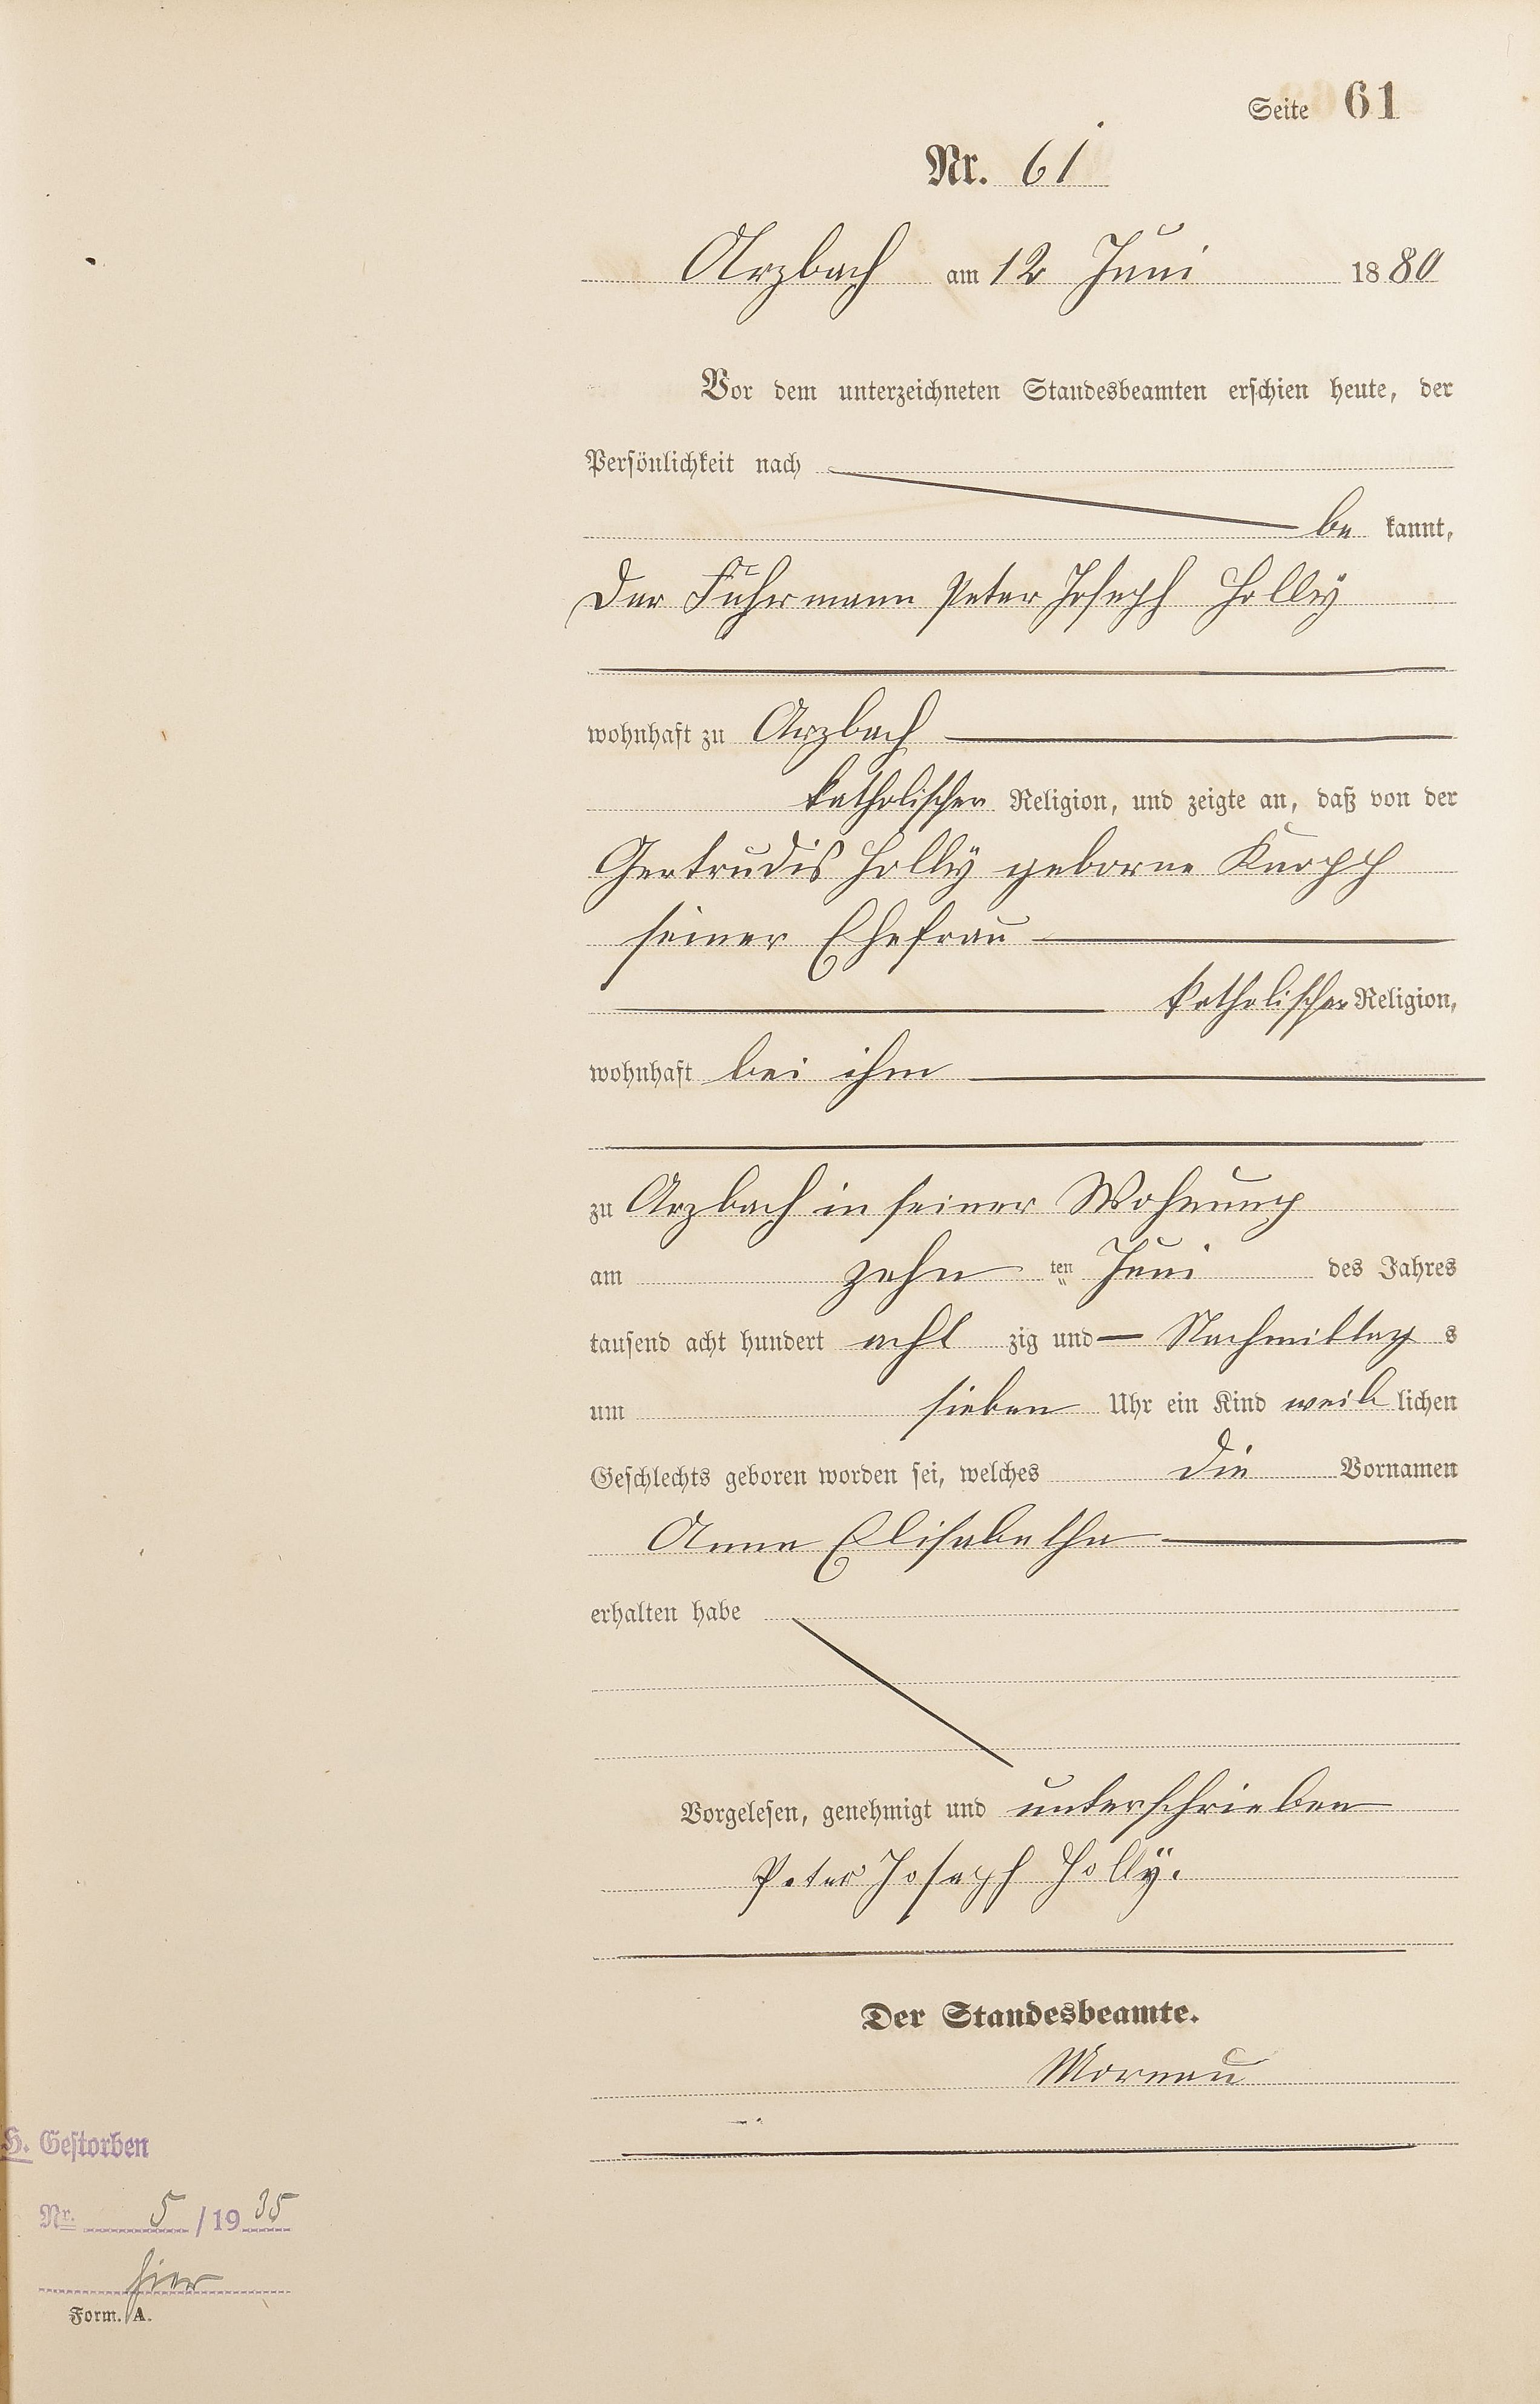 Seite 61
Nr. 61
Arzbach am 12 Juni 1880
Vor dem unterzeichneten Standesbeamten erschien heute, der
Persönlichkeit nach
be kannt,
der Fuhrmann Peter Joseph Holly
wohnhaft zu Arzbach
katholischer Religion, und zeigte an, daß von der
Gertrudis Holly geborne Knopp
seiner Ehefrau
katholischer Religion,
wohnhaft bei ihm
zu Arzbach in seiner Wohnung
am zehn ten Juni des Jahres
tausend acht hundert acht zig und Nachmittag s
um sieben Uhr ein Kind weib lichen
Geschlechts geboren worden sei, welches die Vornamen
Anna Elisabetha
erhalten habe
Vorgelesen, genehmigt und unterschrieben
Peter Joseph Holly.
Der Standesbeamte.
H. Gestorben
Nr. 5 / 19 35
hier
Form. A.